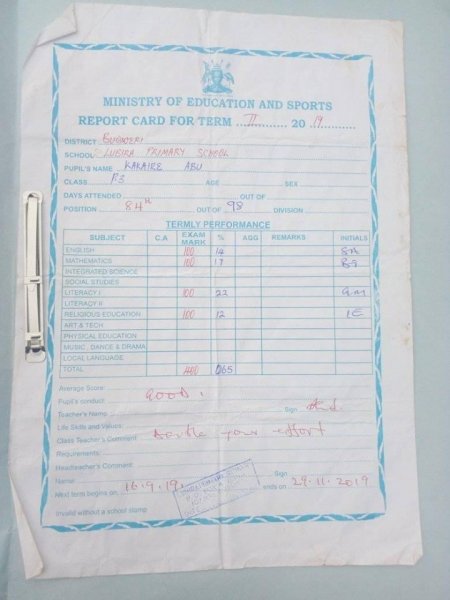 MINISTRY OF EDUCATION AND SPORTS
REPORT CARD FOR TERM II 20 19
DISTRICT BUGIRI
SCHOOL LUBIRA PRIMARY SCHOOL
PUPIL'S NAME KAKAIRE ABU
CLASS P3 AGE SEX
DAYS ATTENDED OUT OF
POSITION 84th OUT OF 98 DIVISION
TERMLY PERFORMANCE
SUBJECT C.A EXAM MARK % AGG REMARKS INITIALS
ENGLISH 100 14
MATHEMATICS 100 17
INTEGRATED SCIENCE
SOCIAL STUDIES
LITERACY I 100 22
LITERACY II
RELIGIOUS EDUCATION 100 12
ART & TECH
PHYSICAL EDUCATION
MUSIC, DANCE & DRAMA
LOCAL LANGUAGE
TOTAL 400 065
Average Score:
Pupil's conduct: GOOD.
Teacher's Name Sign
Life Skills and Values:
Class Teacher's Comment Double your effort
Requirements:
Headteacher's Comment:
Name: Sign
Next term begins on 16.9.19. ends on 29.11.2019
Invalid without a school stamp